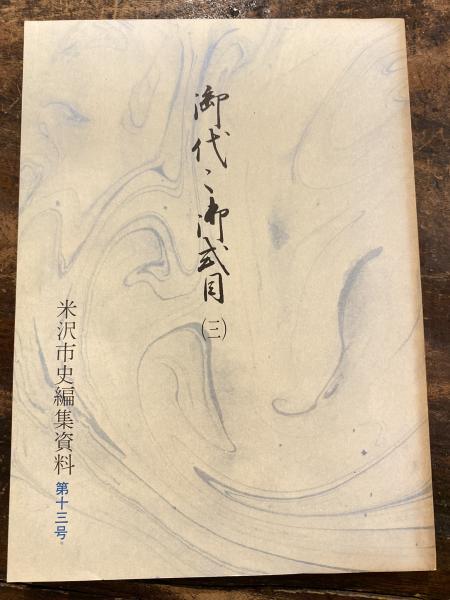 御代々御式目
(三)
米沢市史編集資料
第十三号